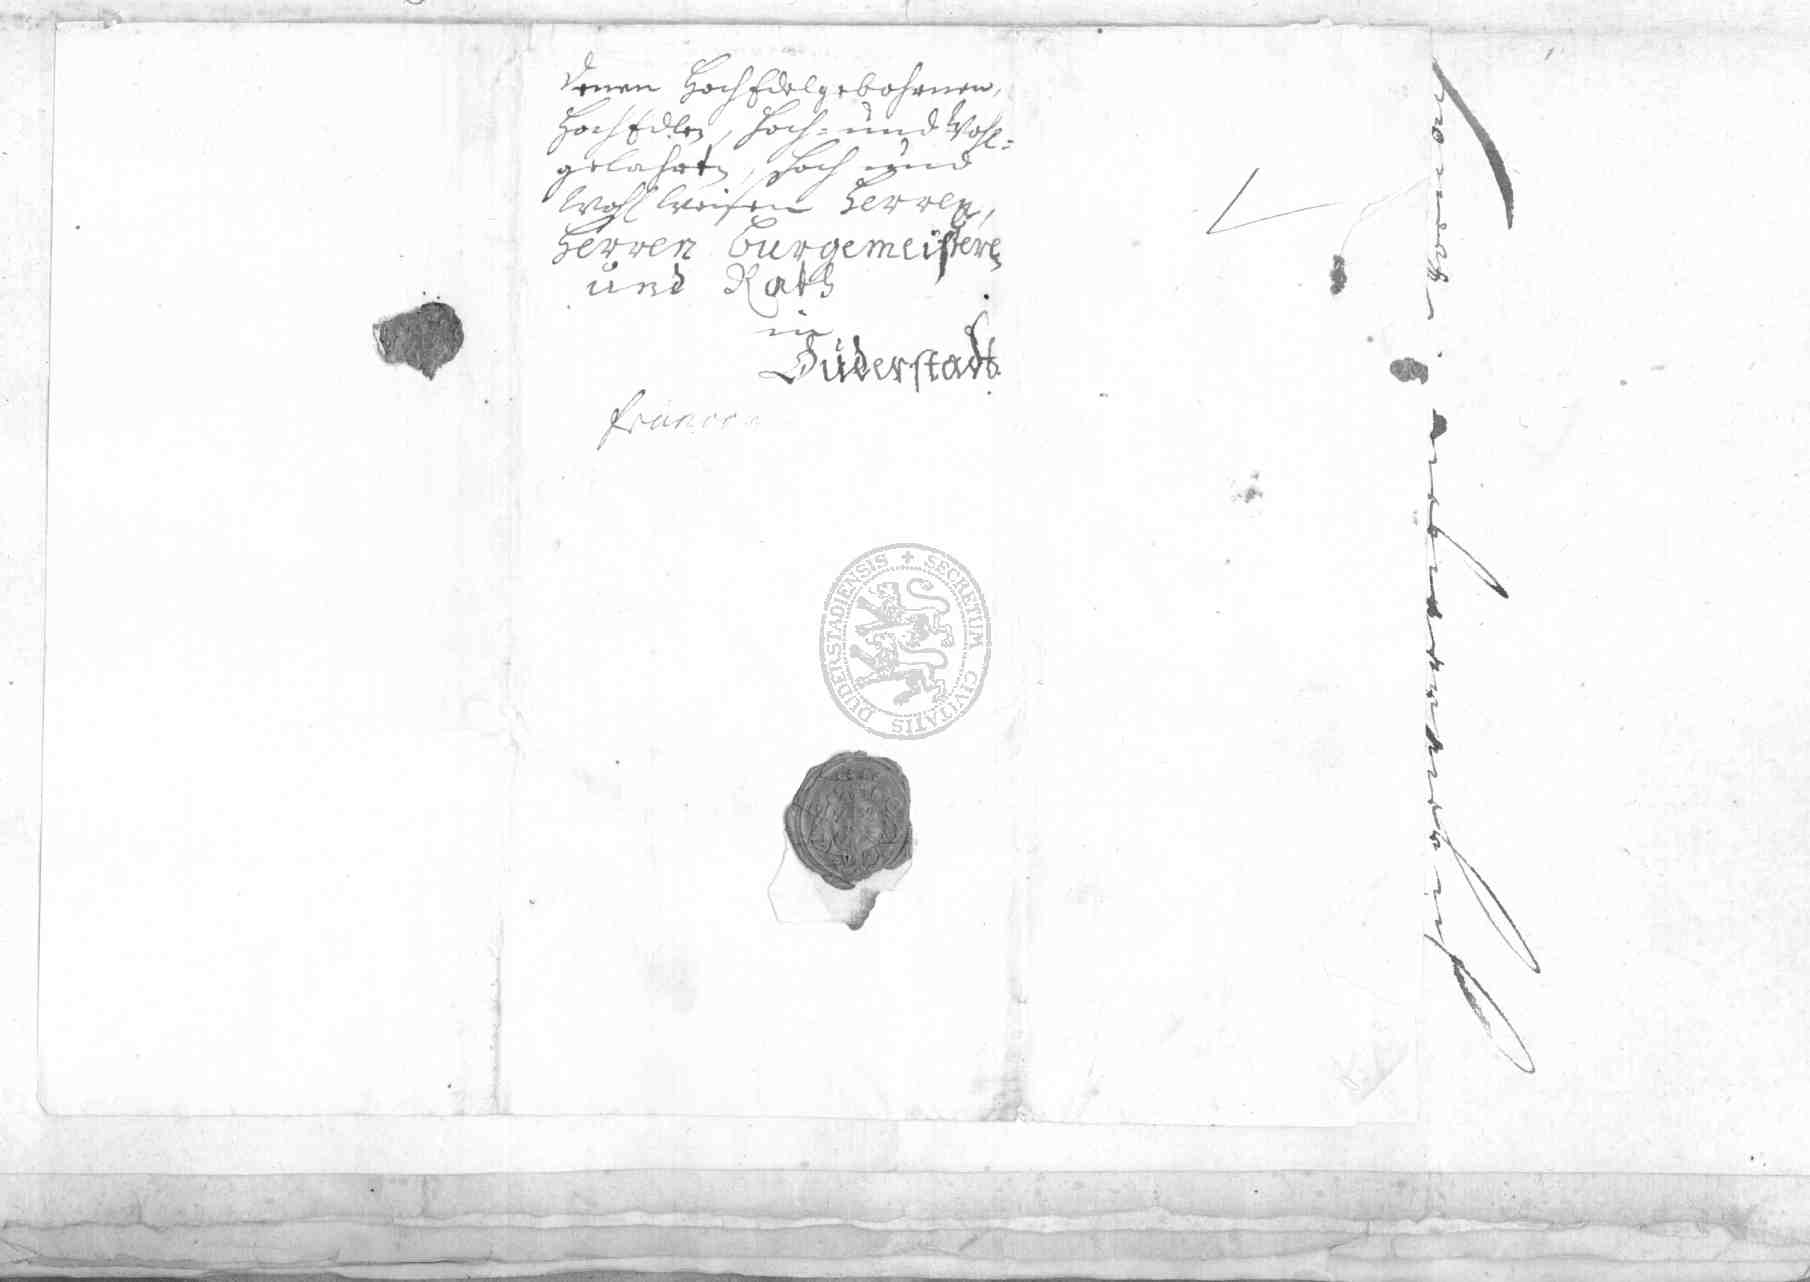 Denen HochEdelgebohrnen,
HochEdlen, Hoch- und Wohl-
gelahrten, Hoch und
Wohlweisen Herren,
Herren Burgemeistere
und Rath
in
Duderstadt
franco
SECRETUM CIVITATIS DUDERSTADIENSIS